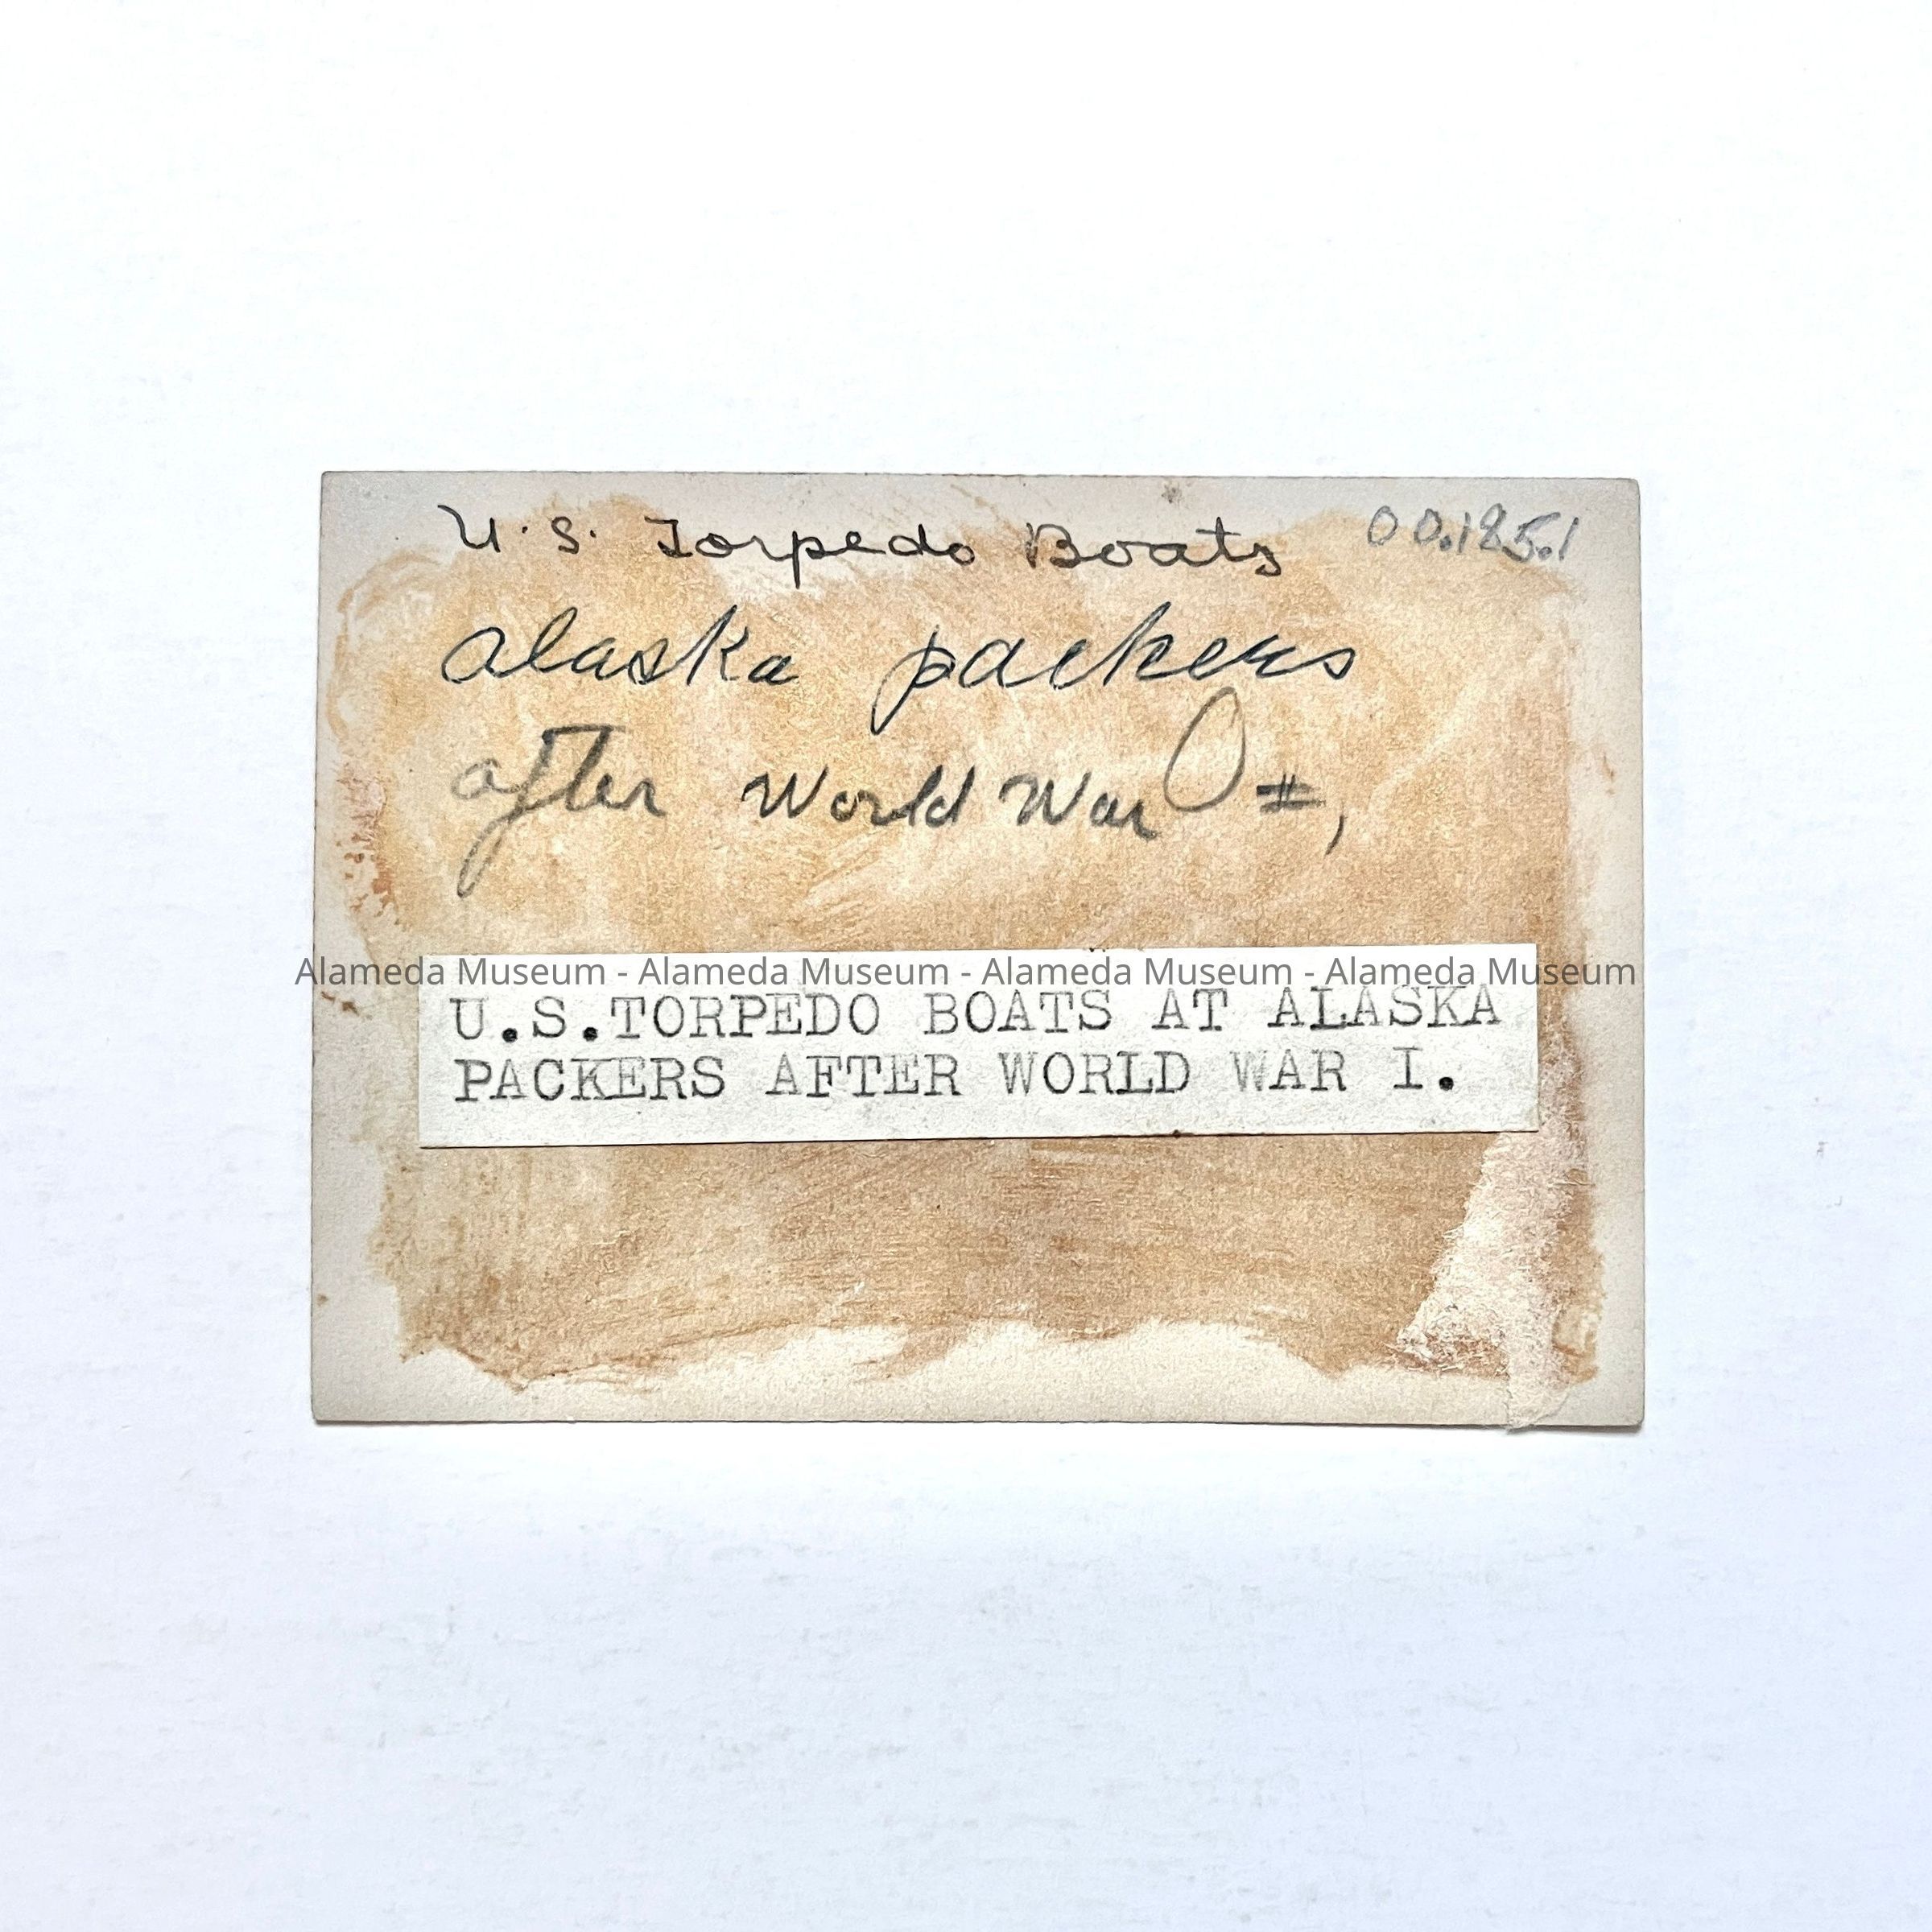 U.S. Torpedo Boats 00.185.1
alaska packers
after World War #,
Alameda Museum - Alameda Museum - Alameda Museum - Alameda Museum
U.S.TORPEDO BOATS AT ALASKA
PACKERS AFTER WORLD WAR I.